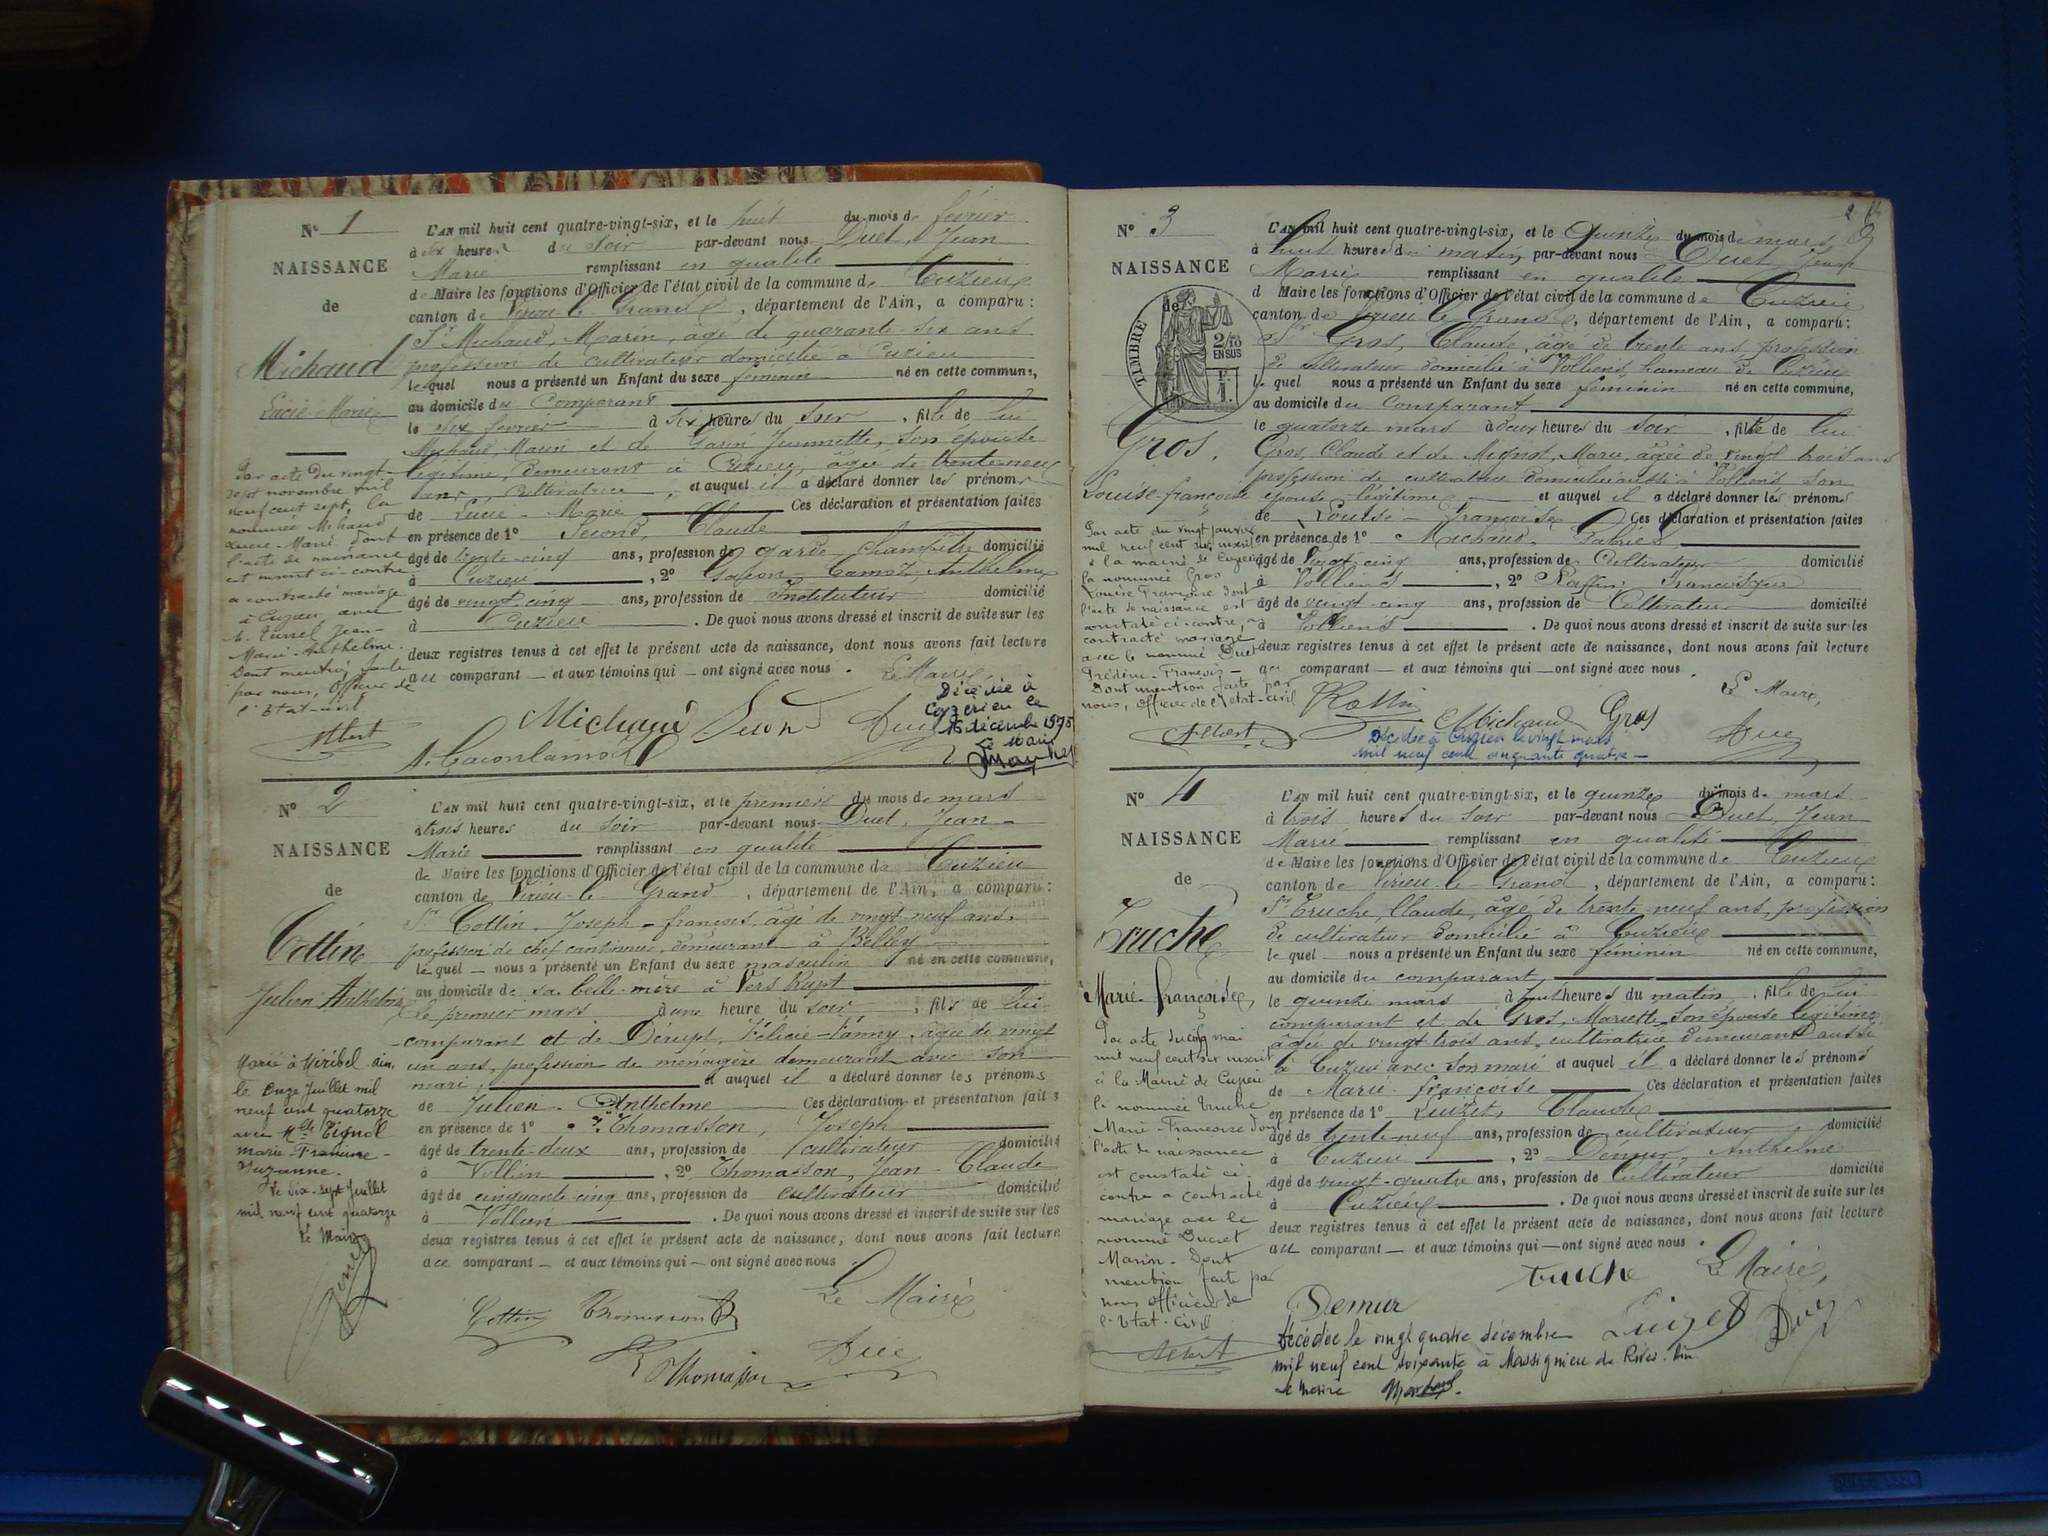 N° 1
NAISSANCE
de
Michaud
Lucie-Marie
Par acte du vingt-
sept novembre mil
neuf cent sept, la
nommée Michaud
Lucie-Marie dont
l'acte de naissance
est inscrit ci-contre
a contracté mariage
à Cuzieu avec
Jean-
Marie-Anthelme.
Dont mention faite
par nous, Officier de
l'Etat-civil
Albert
L'AN mil huit cent quatre-vingt-six, et le huit du mois de février
à six heures du soir par-devant nous Duet, Jean
Marie remplissant en qualité
de Maire les fonctions d'Officier de l'état civil de la commune de Cuzieu
canton de Virieu-le-Grand, département de l'Ain, a comparu :
Sr Michaud, Marin, âgé de quarante-six ans
profession de cultivateur domicilié à Cuzieu
lequel nous a présenté un Enfant du sexe féminin né en cette commune,
au domicile du Comparant
le six février à six heures du soir, fille de lui
Michaud, Marin et de Jeannette, son épouse
légitime, demeurant à Cuzieu, âgée de trente-neuf
ans, cultivatrice, et auquel il a déclaré donner les prénoms
de Lucie-Marie Ces déclaration et présentation faites
en présence de 1° Second, Claude
âgé de trente-cinq ans, profession de garde-champêtre domicilié
à Cuzieu, 2° Anthelme
âgé de vingt-cinq ans, profession de Instituteur domicilié
à Cuzieu. De quoi nous avons dressé et inscrit de suite sur les
deux registres tenus à cet effet le présent acte de naissance, dont nous avons fait lecture
au comparant — et aux témoins qui — ont signé avec nous.
Le Maire,
Michaud Second Duet
Décédée à
le
décembre
Le Maire
N° 2
NAISSANCE
de
Cottin
Julien-Anthelme
Marié à Miribel Ain,
le onze Juillet mil
neuf cent quatorze
avec Mlle Tignol
marie-Francine-
Suzanne.
Le dix-sept Juillet
mil neuf cent quatorze
Le Maire
L'AN mil huit cent quatre-vingt-six, et le premier du mois de mars
à trois heures du soir par-devant nous Duet, Jean-
Marie remplissant en qualité
de Maire les fonctions d'Officier de l'état civil de la commune de Cuzieu
canton de Virieu-le-Grand, département de l'Ain, a comparu :
Sr Cottin, Joseph-françois, âgé de vingt-neuf ans,
profession de chef cantonnier, demeurant à Belley
lequel — nous a présenté un Enfant du sexe masculin né en cette commune,
au domicile de sa belle-mère à Vers Rupt
le premier mars à une heure du soir, fils de lui
comparant et de Dérupt, Félicie-Fanny, âgée de vingt
un ans, profession de ménagère demeurant avec son
mari, et auquel il a déclaré donner les prénoms
de Julien-Anthelme Ces déclaration et présentation faites
en présence de 1° Thomasson, Joseph
âgé de trente-deux ans, profession de cultivateur domicilié
à Vollien, 2° Thomasson, Jean-Claude
âgé de cinquante-cinq ans, profession de cultivateur domicilié
à Vollien. De quoi nous avons dressé et inscrit de suite sur les
deux registres tenus à cet effet le présent acte de naissance, dont nous avons fait lecture
au comparant — et aux témoins qui — ont signé avec nous
Le Maire
Cottin Thomasson
Thomasson Duet
2
N° 3
NAISSANCE
de
TIMBRE
2/10
EN SUS
Gros.
Louise-françoise
Par acte du vingt janvier
mil neuf cent six, inscrit
à la mairie de Cuzieu
la nommée Gros
Louise Françoise dont
l'acte de naissance est
constaté ci-contre, a
contracté mariage
avec le nommé Duet
Frédéric-François —
Dont mention faite par
nous, officier de l'etat-civil
Albert
L'AN mil huit cent quatre-vingt-six, et le Quinze du mois de mars
à huit heures du matin par-devant nous Duet, Jean
Marie remplissant en qualité
d Maire les fonctions d'Officier de l'état civil de la commune de Cuzieu
canton de Virieu-le-Grand, département de l'Ain, a comparu :
Sr Gros, Claude, âgé de trente ans, profession
de cultivateur domicilié à Volliens, hameau de Cuzieu
le quel nous a présenté un Enfant du sexe féminin né en cette commune,
au domicile du Comparant
le quatorze mars à deux heures du soir, fille de lui
Gros, Claude et de Mignot, Marie, âgée de vingt trois ans
profession de cultivatrice domiciliée aussi à Volliens, son
épouse légitime et auquel il a déclaré donner les prénoms
de Louise-Françoise Ces déclaration et présentation faites
en présence de 1° Michaud, Fabrice
âgé de vingt-cinq ans, profession de Cultivateur domicilié
à Volliens, 2° Raffin, Francisque
âgé de vingt-cinq ans, profession de Cultivateur domicilié
à Volliens. De quoi nous avons dressé et inscrit de suite sur les
deux registres tenus à cet effet le présent acte de naissance, dont nous avons fait lecture
au comparant — et aux témoins qui — ont signé avec nous.
Le Maire,
Raffin Michaud Gros Duet
Décédée à Cuzieu le vingt mars
mil neuf cent cinquante quatre —
N° 4
NAISSANCE
de
Truche
Marie-françoise
Par acte du cinq mai
mil neuf cent six inscrit
à la Mairie de Cuzieu
la nommée Truche
Marie-Françoise dont
l'acte de naissance
est constaté ci-
contre a contracté
mariage avec le
nommé Ducret
Marin. Dont
mention faite par
nous officier de
l'etat-civil
Albert
L'AN mil huit cent quatre-vingt-six, et le quinze du mois de mars
à trois heures du soir par-devant nous Duet, Jean
Marie remplissant en qualité
de Maire les fonctions d'Officier de l'état civil de la commune de Cuzieu
canton de Virieu-le-Grand, département de l'Ain, a comparu :
Sr Truche, Claude, âgé de trente-neuf ans, profession
de cultivateur domicilié à Cuzieu
le quel nous a présenté un Enfant du sexe féminin né en cette commune,
au domicile du comparant
le quinze mars à huit heures du matin, fille de lui
comparant et de Gros, Mariette, son épouse légitime,
âgée de vingt trois ans, cultivatrice demeurant aussi
à Cuzieu avec son mari et auquel il a déclaré donner les prénoms
de Marie-françoise Ces déclaration et présentation faites
en présence de 1° Luizet, Claude
âgé de trente-neuf ans, profession de cultivateur domicilié
à Cuzieu, 2° Démur, Anthelme
âgé de vingt-quatre ans, profession de Cultivateur domicilié
à Cuzieu. De quoi nous avons dressé et inscrit de suite sur les
deux registres tenus à cet effet le présent acte de naissance, dont nous avons fait lecture
au comparant — et aux témoins qui — ont signé avec nous.
truche Le Maire,
Demur Luizet Duet
Décédée le vingt quatre décembre
mil neuf cent soixante à Massignieu de Rives. Ain
le maire